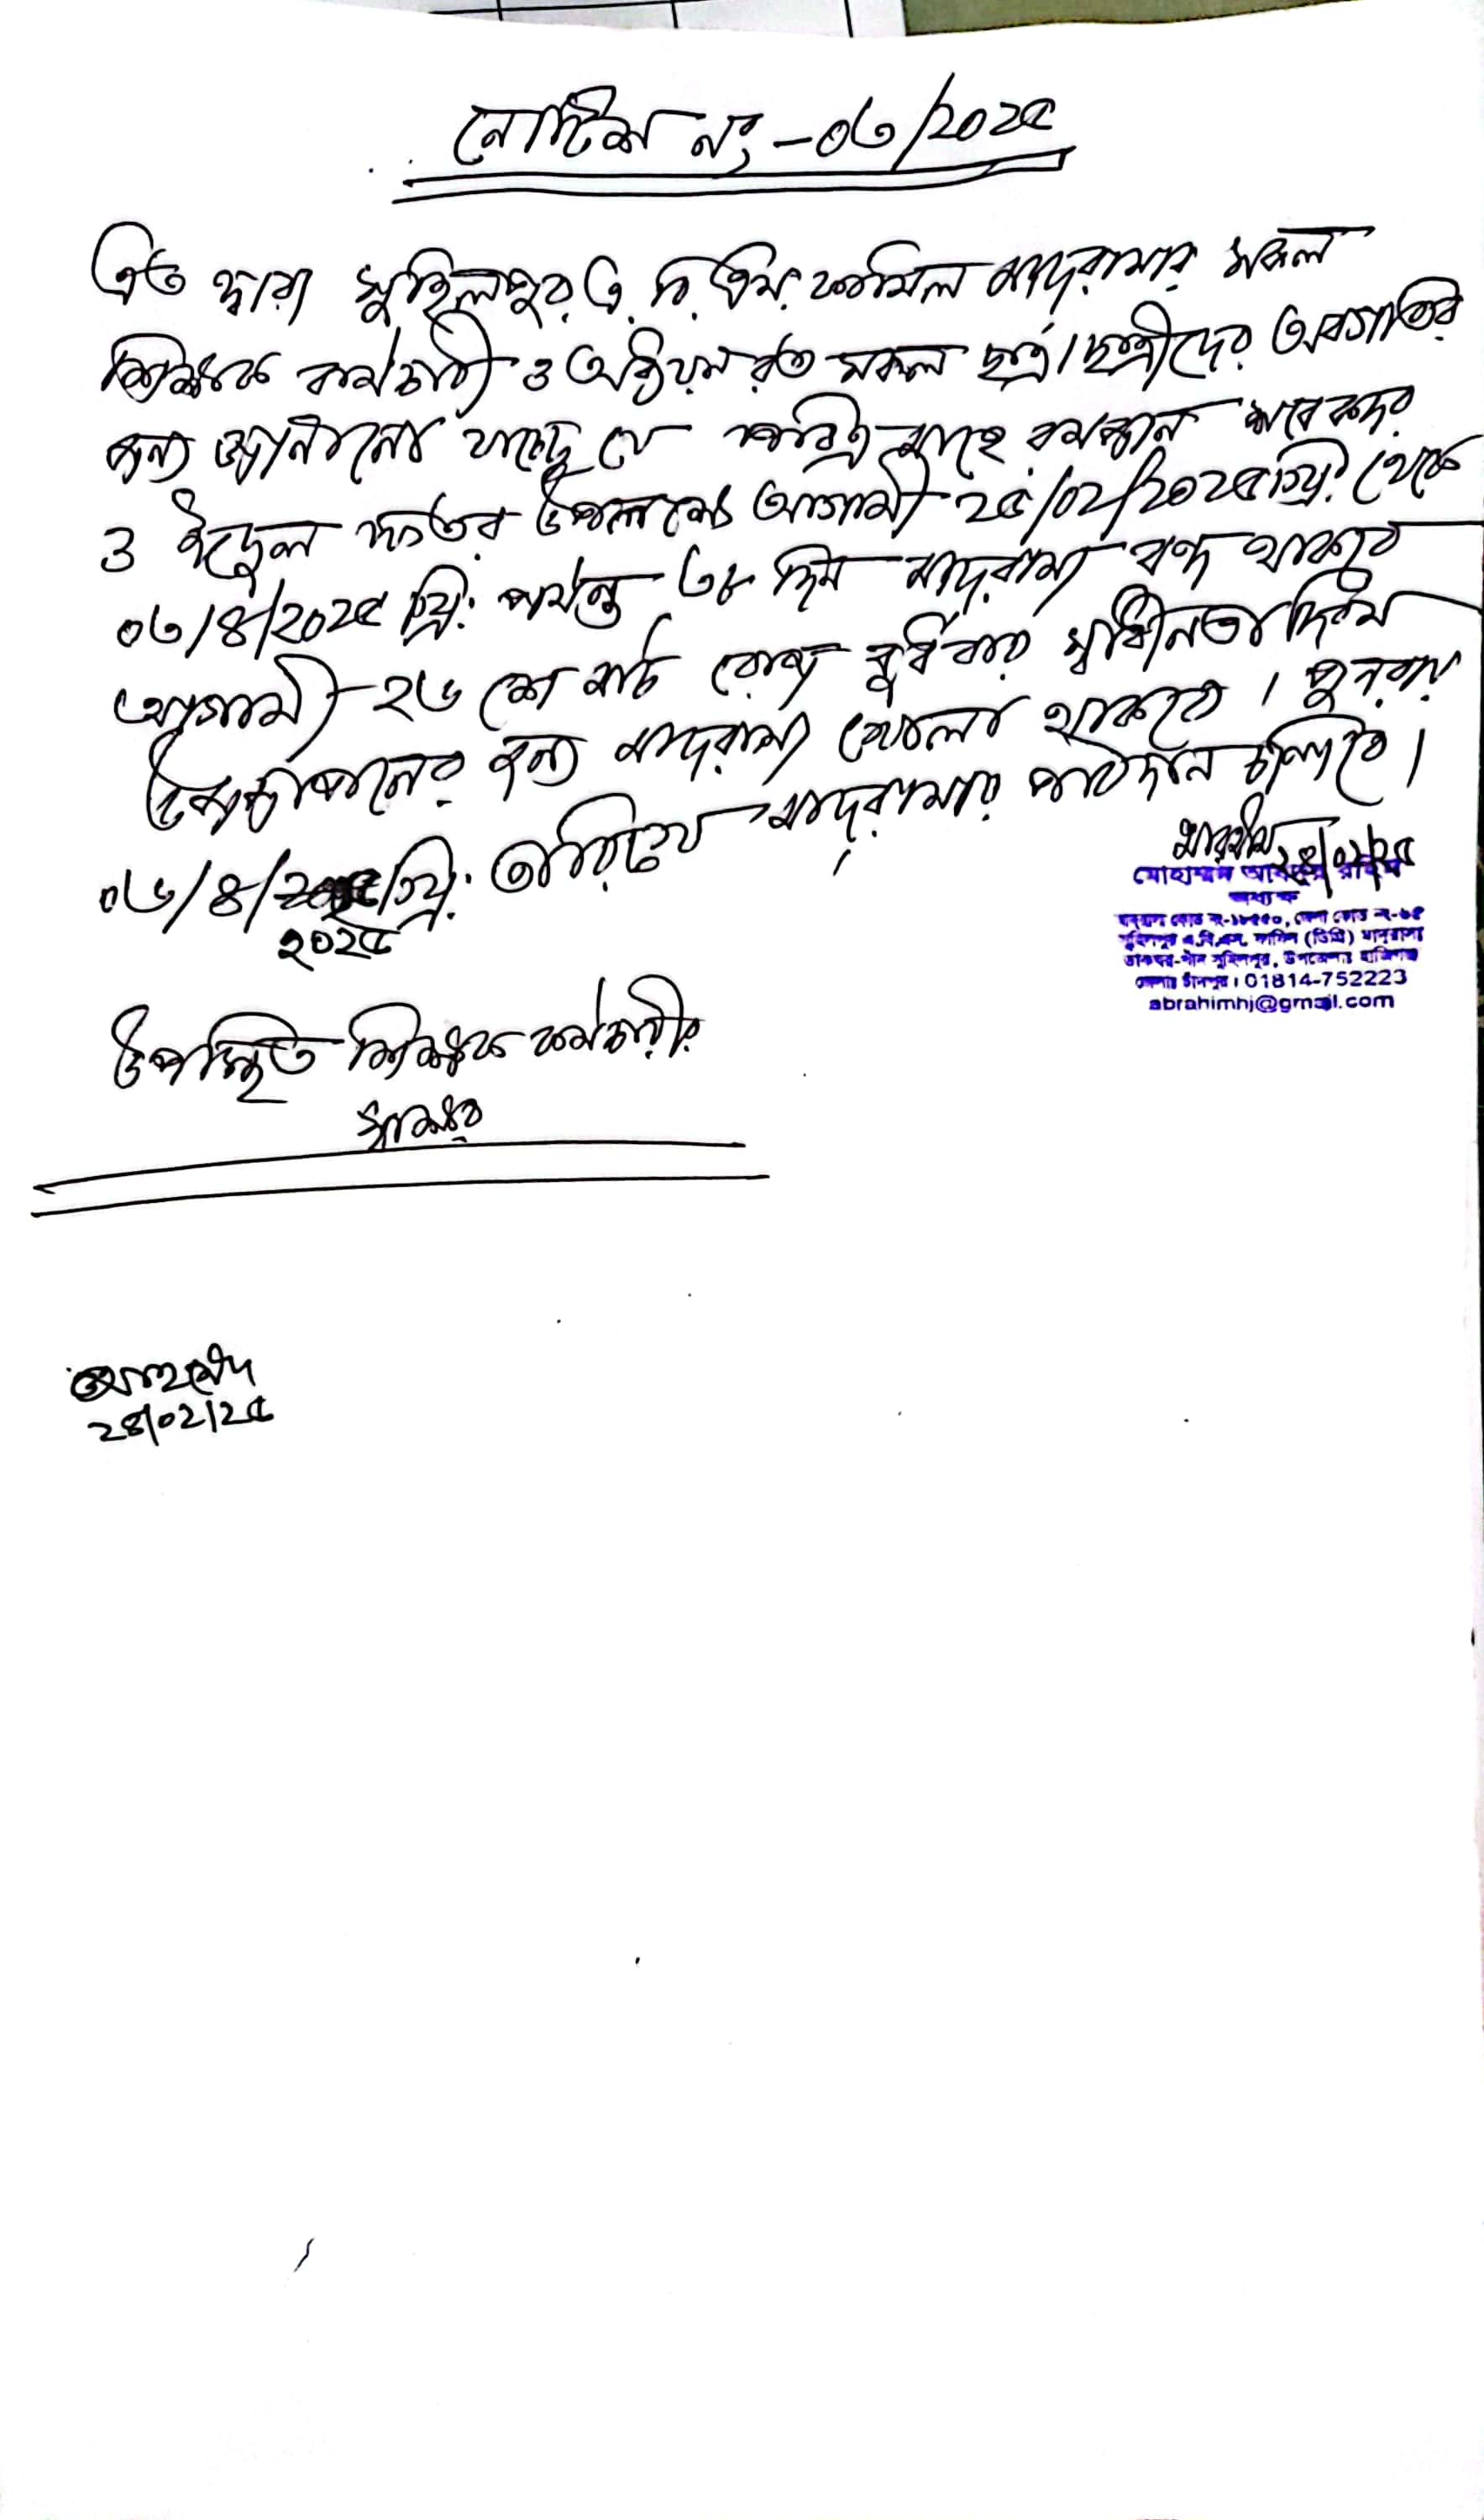 নোটিশ নং -০৬/২০২৫
এত দ্বারা সুহিলপুর এ. বি. এম. ফাযিল মাদরাসার সকল
শিক্ষক কর্মচারী ও অধ্যয়ন রত সকল ছাত্র/ছাত্রীদের অবগতির
জন্য জানানো যাচ্ছে যে পবিত্র মাহে রমজান শবে কদর
ও ঈদুল ফিতর উপলক্ষ্যে আগামী ২৫/০২/২০২৫ খ্রি. থেকে
০৬/৪/২০২৫ খ্রি. পর্যন্ত দিন মাদরাসা বন্ধ থাকবে
আগামী ২৬ শে মার্চ রোজ বুধবার স্বাধীনতা দিবস
উদযাপনের জন্য মাদরাসা খোলা থাকবে। পুনরায়
০৬/৪/ খ্রি. তারিখে মাদরাসায় পাঠদান চলিবে।
২০২৫
২৪/০২/২৫
মোহাম্মদ আবদুর রহিম
অধ্যক্ষ
সুহিলপুর এ.বি.এম. ফাযিল (ডিগ্রি) মাদ্রাসা
ডাকঘর-গ্রাম সুহিলপুর, উপজেলাঃ হাজিগঞ্জ
জেলাঃ চাঁদপুর। 01814-752223
abrahimhj@gmail.com
উপস্থিত শিক্ষক কর্মচারীর
স্বাক্ষর
২৪/০২/২৫